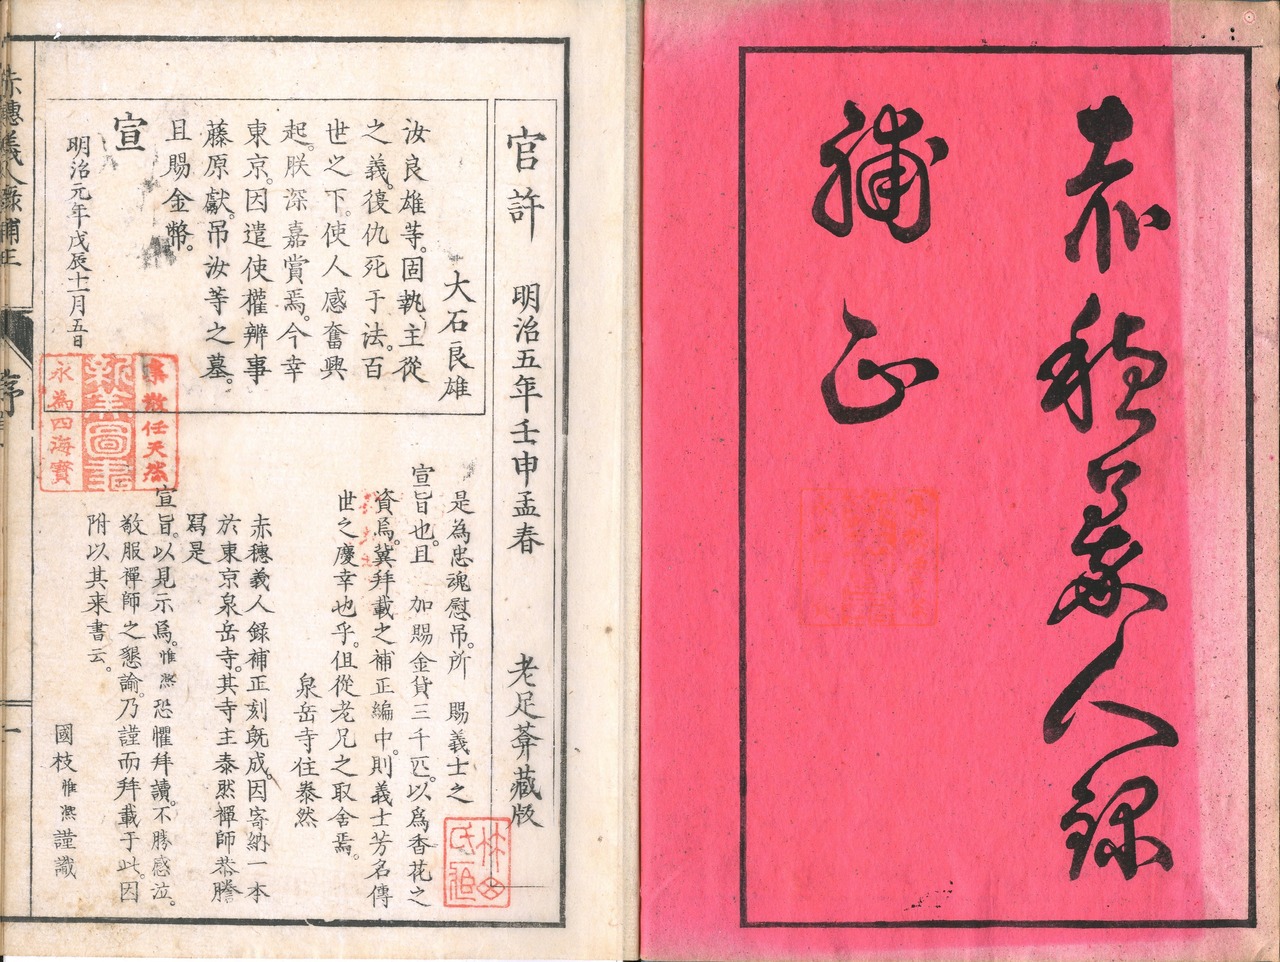 赤穗義人錄
補正
官許　明治五年壬申孟春　老足葊藏版
大石良雄
汝良雄等。固執主從
之義。復仇死于法。百
世之下。使人感奮興
起。朕深嘉賞焉。今幸
東京。因遣使權辨事
藤原獻。吊汝等之墓。
且賜金幣。
宣
明治元年戊辰十一月五日
是為忠魂慰吊。所　賜義士之
宣旨也。且　加賜金貨三千匹。以為香花之
資焉。冀拜載之補正編中。則義士芳名傳
世之慶幸也乎。但從老兄之取舍焉。
泉岳寺住泰然
赤穗義人錄補正刻既成。因寄納一本
於東京泉岳寺。其寺主泰然禪師恭謄
寫是
宣旨。以見示焉。惟㷀恐懼拜讀。不勝感泣。
敬服禪師之懇諭。乃謹而拜載于此。因
附以其来書云。
國枝惟㷀謹識
集散任天然
永為四海寳
赤穗義人錄補正
序
一